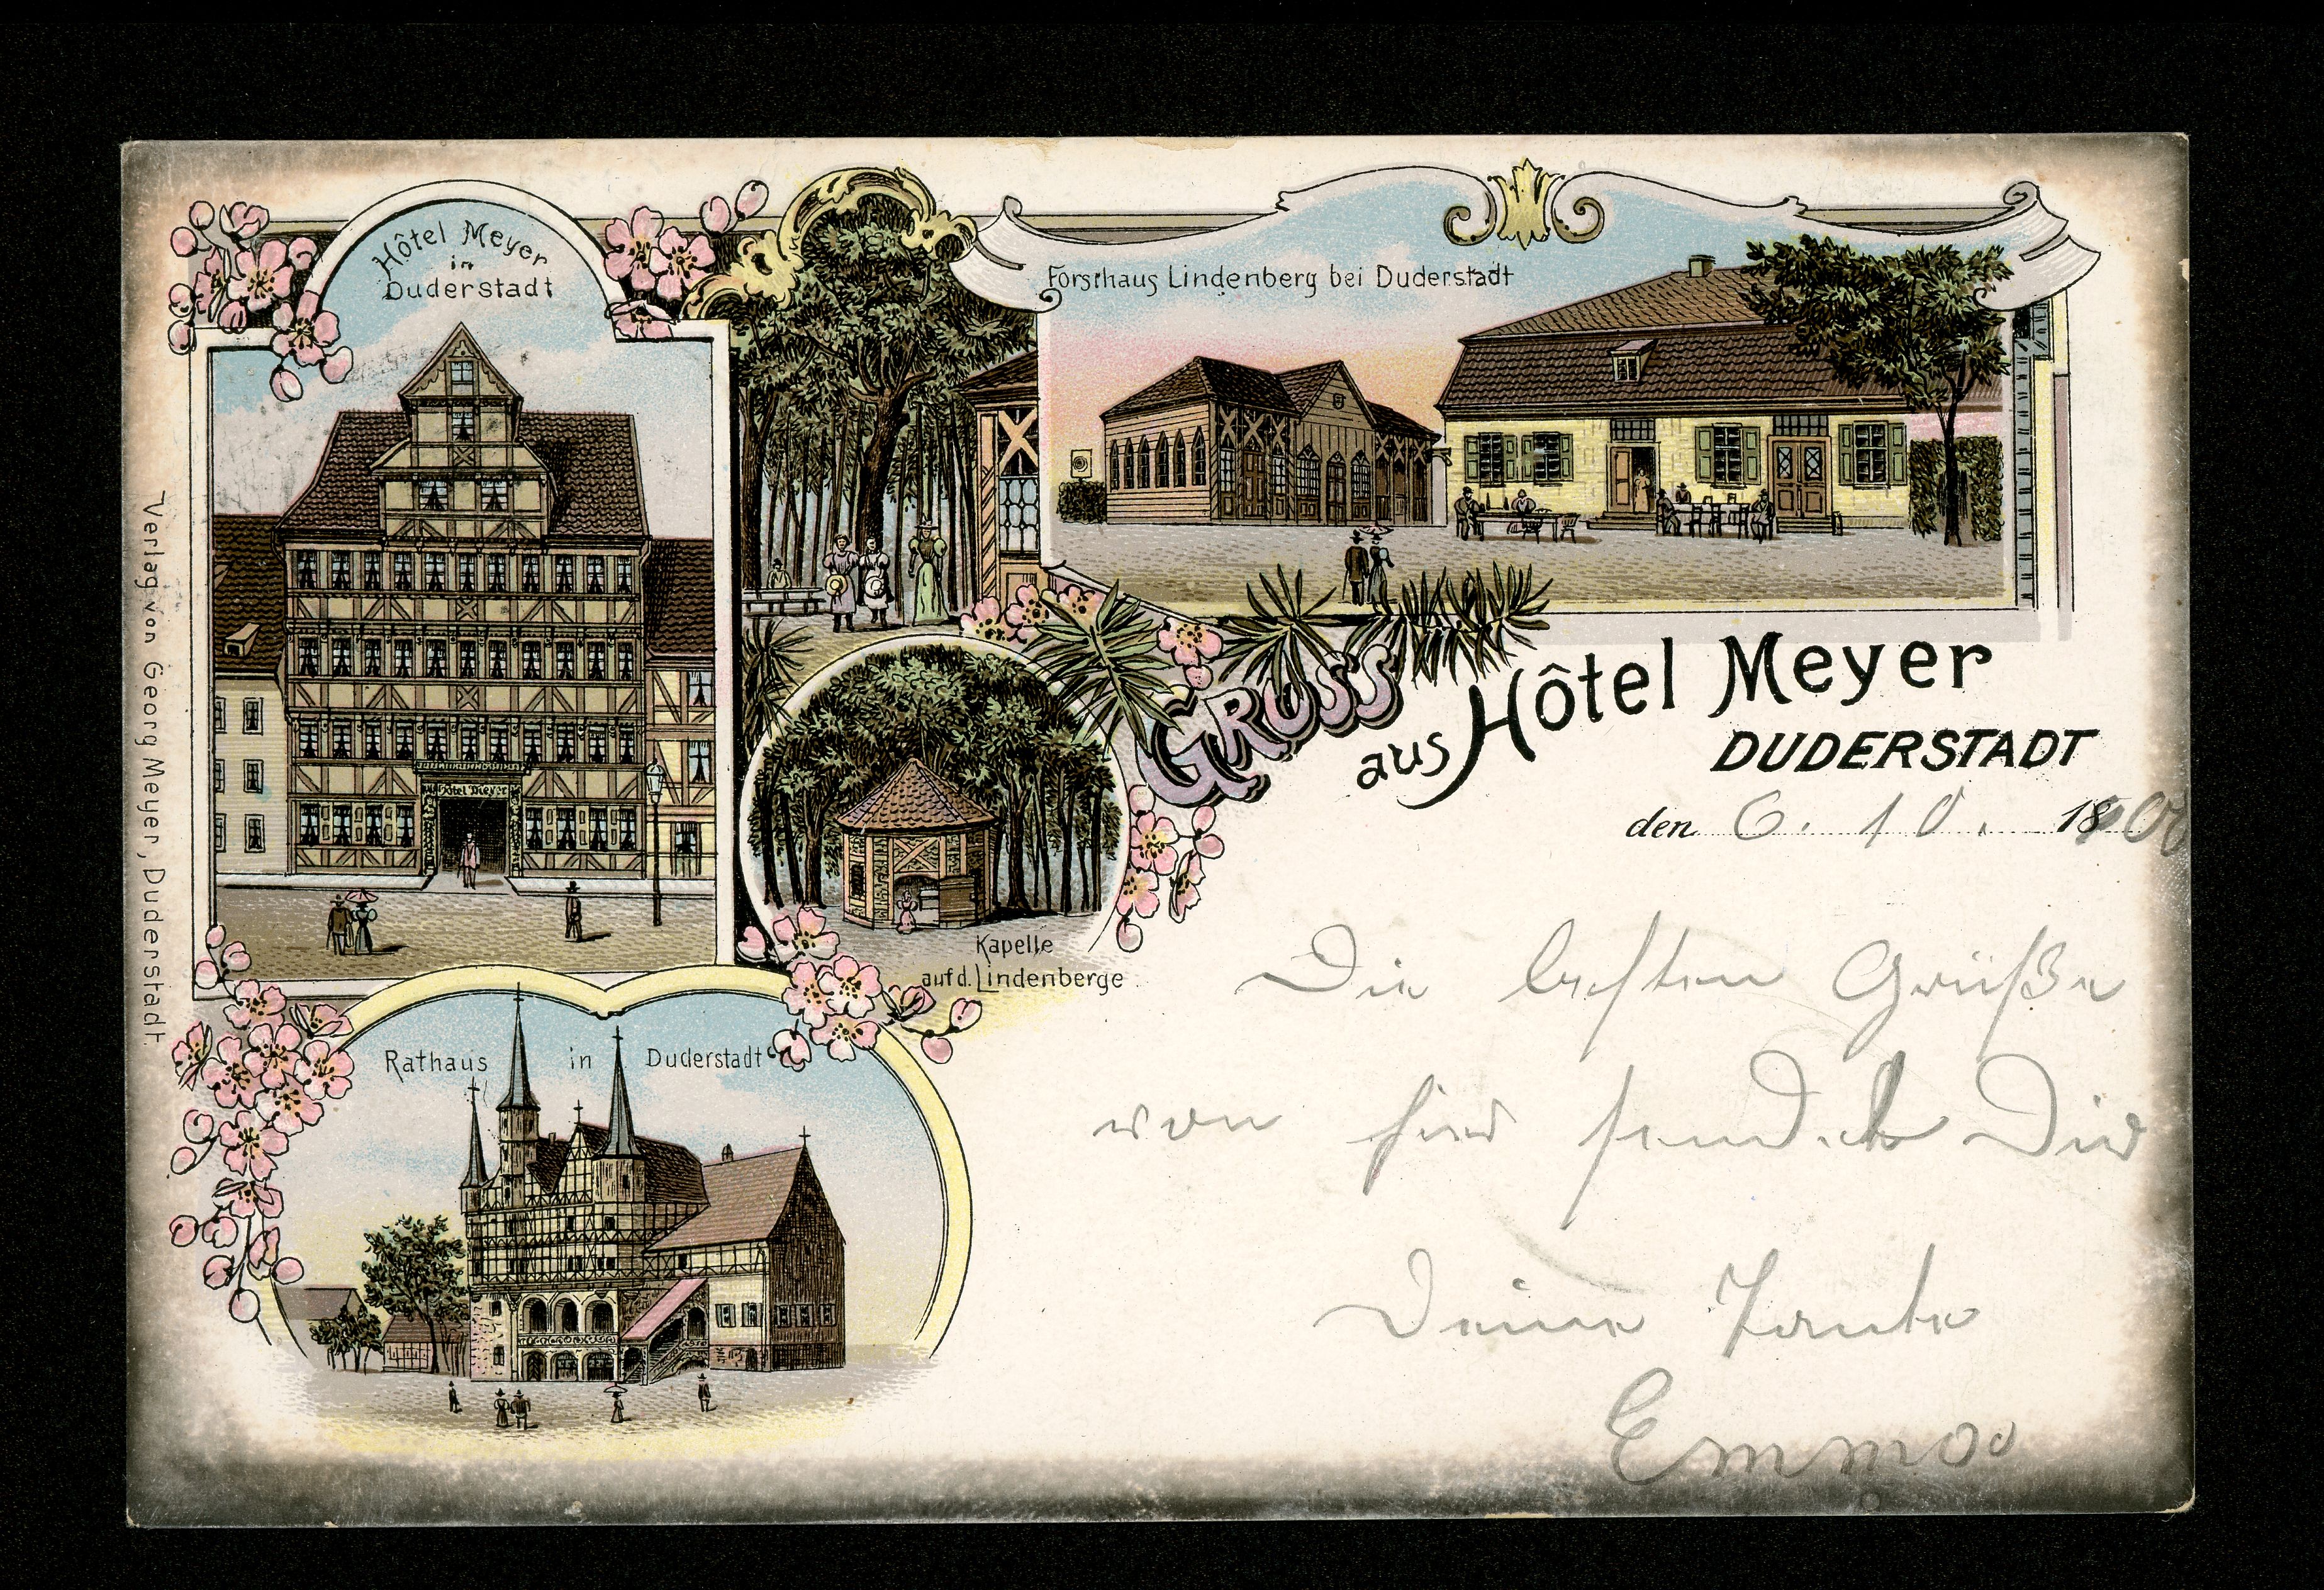 Hôtel Meyer
in
Duderstadt
Forsthaus Lindenberg bei Duderstadt
Hôtel Meyer
GRUSS
aus Hôtel Meyer
DUDERSTADT
den 6. 10. 1900
Kapelle
auf d. Lindenberge.
Rathaus in Duderstadt
Verlag von Georg Meyer, Duderstadt.
Die besten Grüße
von hier sendet Dir
Deine Tante
Emma